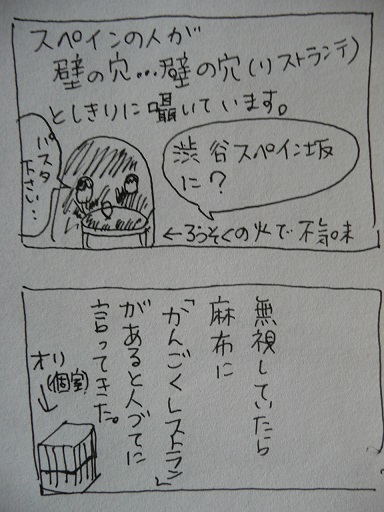 スペインの人が
壁の穴…壁の穴(リストランテ)
としきりに囁いています。
パスタ
下さい…
渋谷スペイン坂
に?
←ろうそくの火で不気味
無視していたら
麻布に
「かんごくレストラン」
があると人づてに
言ってきた。
オリ
(個室)